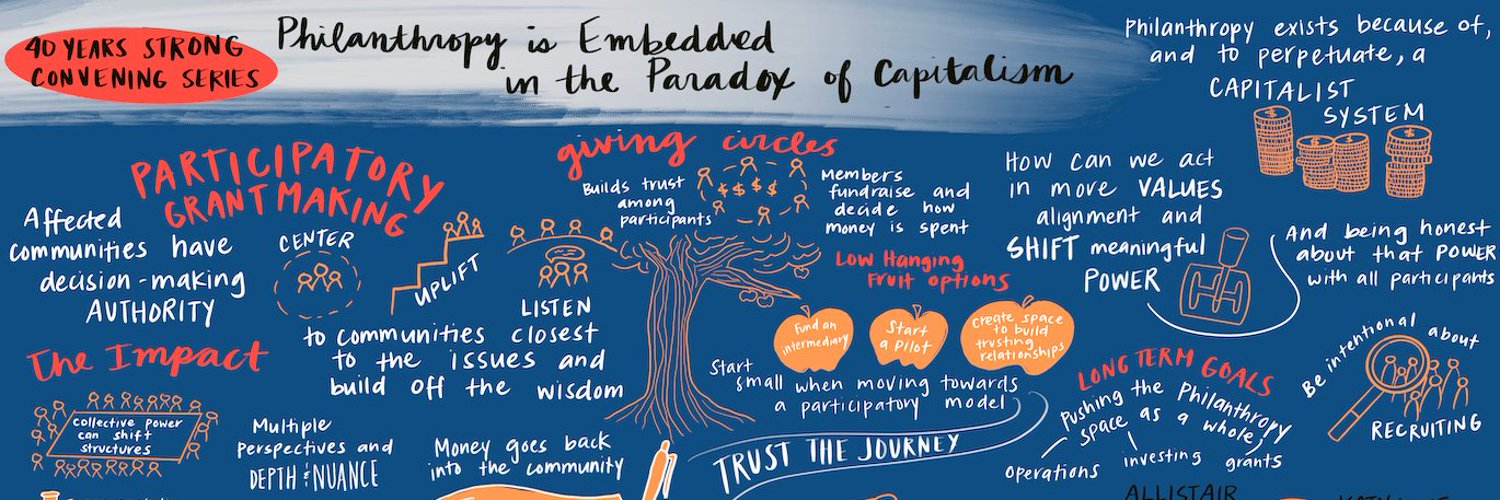 40 YEARS STRONG
CONVENING SERIES
Philanthropy is Embedded
in the Paradox of Capitalism
Philanthropy exists because of,
and to perpetuate, a
CAPITALIST
SYSTEM
PARTICIPATORY
GRANTMAKING
Affected
communities have
decision-making
AUTHORITY
CENTER
UPLIFT
LISTEN
to communities closest
to the issues and
build off the wisdom
giving circles
Builds trust
among
participants
$$$$
Members
fundraise and
decide how
money is spent
Low Hanging
Fruit options
Fund an
intermediary
Start
a Pilot
Create space
to build
trusting
relationships
Start
small when moving towards
a participatory model
TRUST THE JOURNEY
HOW can we act
in more VALUES
alignment and
SHIFT meaningful
POWER
And being honest
about that POWER
with all participants
The Impact
collective power
can shift
structures
Multiple
perspectives and
DEPTH & NUANCE
Money goes back
into the community
LONG TERM GOALS
Pushing the Philanthropy
space as a whole!
operations
investing
grants
Be intentional about
RECRUITING
ALLISTAIR